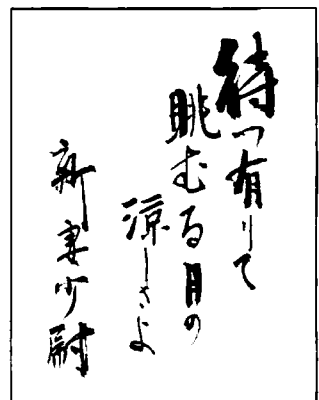 待つ有りて
眺むる月の
涼しさよ
新妻少尉